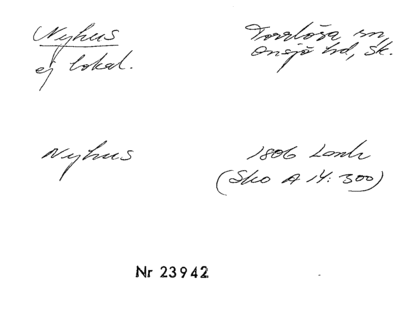 Nyhus
ej lokal.
Torrlösa sn,
Onsjö hd, Sk.
Nyhus
1806 Lantm
(Sko A 14: 300)
Nr 23942